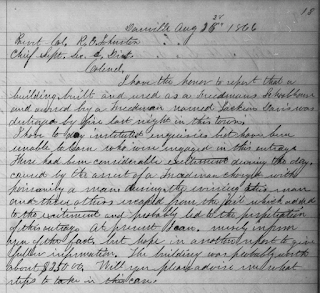 18
Danville Aug 25th 1866
Brevt Col. R. E. Johnston
Chief Supt. Sec. of Dist.
Colonel,
I have the honor to report that a
building built and used as a Freedmens School house
and owned by a Freedman named was
destroyed by fire last night in this town;
I have to day instituted inquiries but have been
unable to learn who were engaged in this outrage
There had been considerable excitement during the day,
caused by the arrest of a Freedman charged with
a man during the evening this man
and three others escaped from the jail which added
to the excitement and probably led to the perpetration
of this outrage. At present I can merely inform
you of the fact, but hope in another report to give
fuller information. The building was probably worth
about $350.00. Will you please advise me what
steps to take in this case.